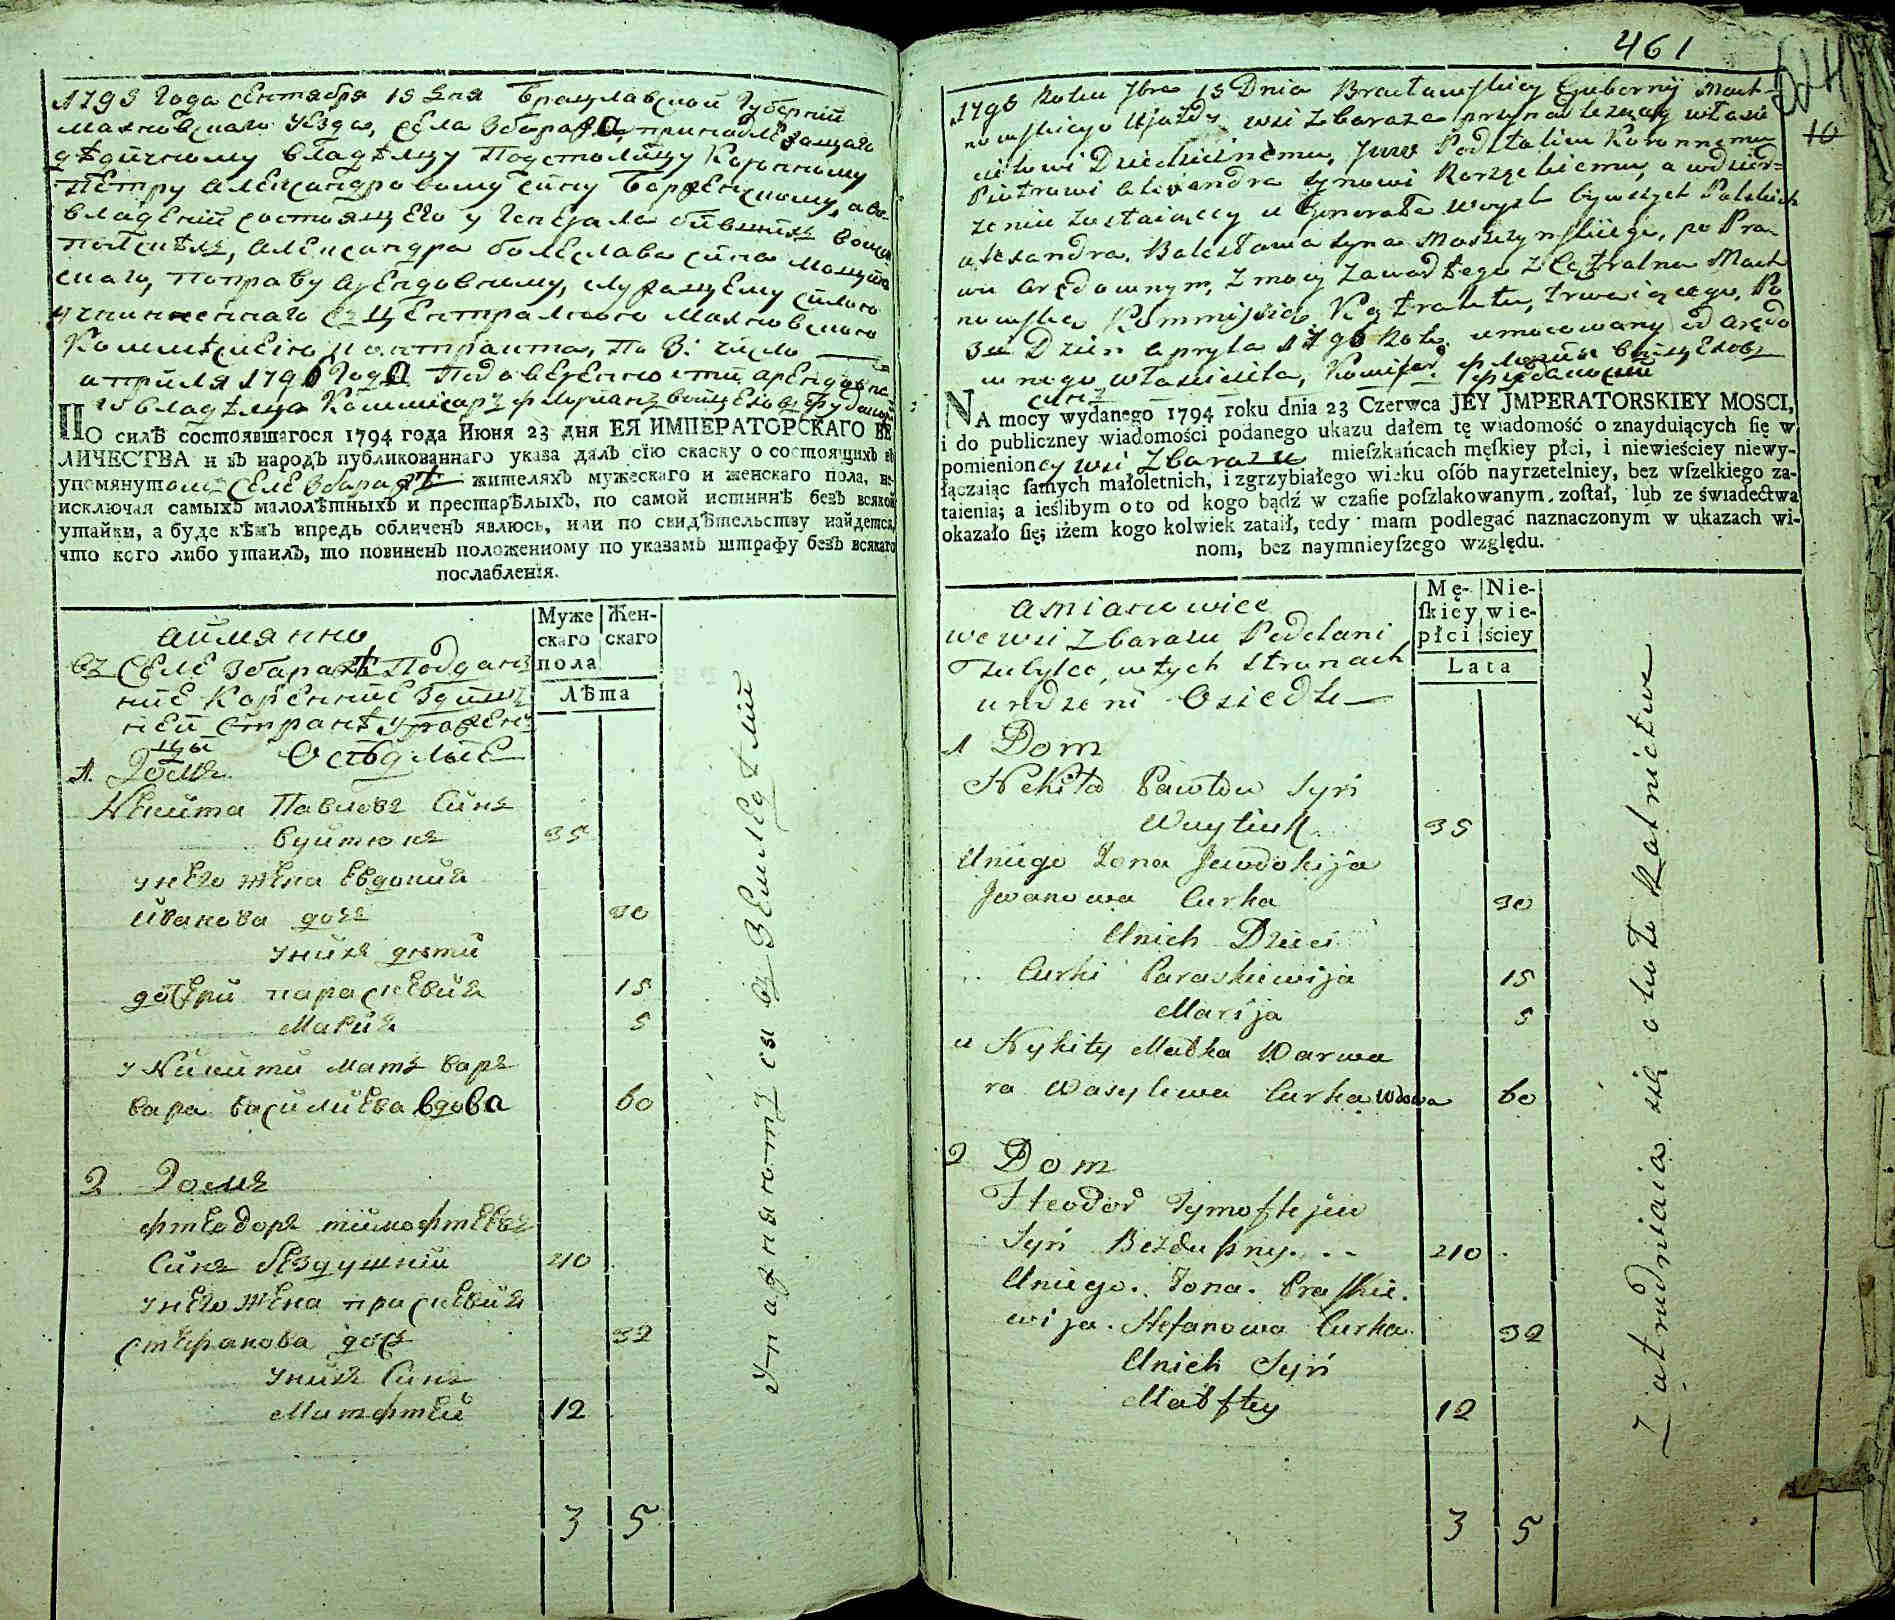 1795 Года Сентября 15 дня Брацлавской Губернии
Махновскаго Уезда, села Збаража, принадлежащаго
дѣдичному владѣлцу Подстолицу Коронному
Петру Александровому сину
владении состоящего у Генерала бившихъ войскъ
Полскихъ, Александра Болеслава сина
скаго, по праву арендовному, служащему силою
учиненнаго съ Централною Махновскою
Коммисиею контракта, по 3: число
априля 1796 Года Под доверенностии арендовна
го владѣлца Коммисаръ Флориянъ
ПО силѣ состоявшагося 1794 года Июня 23 дня ЕЯ ИМПЕРАТОРСКАГО ВЕ
ЛИЧЕСТВА и въ народъ публикованнаго указа далъ сїю скаску о состоящихъ въ
упомянутомъ Селе Збаражѣ жителяхъ мужескаго и женскаго пола, не
исключая самыхъ малолѣтныхъ и престарѣлыхъ, по самой истиннѣ безъ всякой
утайки, а буде кѣмъ впредь обличенъ явлюсь, или по свидѣтельству найдется,
что кого либо утаилъ, то повиненъ положенному по указамъ штрафу безъ всякаго
послабленїя.
аймянно
Муже скаго пола
Жен- скаго
Лѣта
въ Селе Збаражѣ Поддан
ние Коренние здиш
ней странѣ урожен
цы Осѣдлые
1. Домъ
Никита Павловъ Синъ
Вуйтюкъ 35
у него жена Евдокия
Иванова дочь 30
у нихъ дѣти
дочери Параскевия 15
Мария 5
у Никити мать Вар
вара Василиева вдова 60
2 Домъ
Фтеодоръ Тимофтеевъ
Синъ Бездушний 40
у него жена Праскевия
Стефанова дочь 32
у нихъ Синъ
Матфтей 12
3 5
Упражняютця въ Земледѣлии
461
10
1795 Roku 7bra 15 Dnia Bracławskiey Gubernij Mach-
nowskiego Ujazdu wsi Zbaraza przynależnąey własci
cielowi Dziedzicznemu, Podstolicu Koronnemu
Piotrowi Alexandra synowi a w dzier-
zeniu zostaiącey u Generała woysk bywszych Polskich
Alexandra, Bolesława syna po Pra
wu arędownym, z mocy zawartego z Cętralną Mach
nowską Kommissią Kątraktu, trwaiącego, Po
3ci Dzień apryla 1796 Roku umocowany od arędo
wnego własciciela,
NA mocy wydanego 1794 roku dnia 23 Czerwca JEY JMPERATORSKIEY MOSCI,
i do publiczney wiadomości podanego ukazu dałem tę wiadomość o znayduiących ſię w
pomienioney wsi Zbarazu mieſzkańcach męſkiey płci, i niewieściey niewy-
łączaiąc ſamych małoletnich, i zgrzybiałego wieku oſób nayrzetelniey, bez wſzelkiego za-
taienia; a ieślibym oto od kogo bądź w czaſie poſzlakowanym zoſtał, lub ze świadectwa
okazało ſię; iżem kogo kolwiek zataił, tedy mam podlegać naznaczonym w ukazach wi-
nom, bez naymnieyſzego względu.
a mianowice
Mę- ſkiey płci
Nie- wie- ściey
Lata
we wsi Zbarazu Poddani
Tubylce, w tych stronach
urodzeni Osiedli
1 Dom
Nekita Pawłow Syn
Wuytiuk 35
U niego Żona Jewdokija
Jwanowa Curka 30
U nich Dzieci
Curki Paraskiewija 15
Marija 5
u Nykity Matka Warwa
ra Wasylewa Curka wdowa 60
2 Dom
Fteodor Tymoftejew
Syn Bezduszny. 40
U niego. Żona. Praskie.
wija. Stefanowa Curka. 32
U nich Syn
Matftey 12
3 5
Zatrudniaią się około Rolnictwa